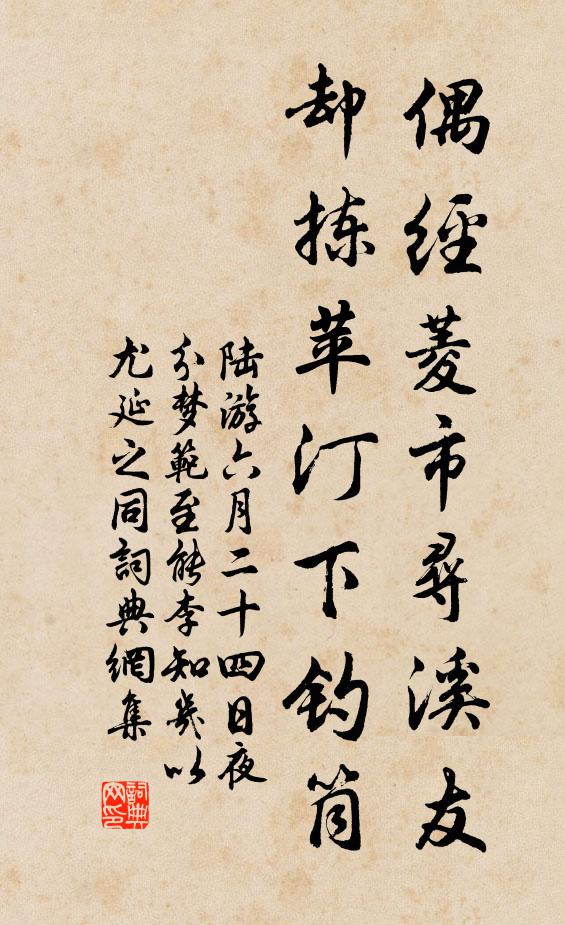 偶經菱市尋溪友
却拣苹汀下钓筒
陆游六月二十四日夜
分梦範至能李知幾以
尤延之同詞典網集
詞典网印